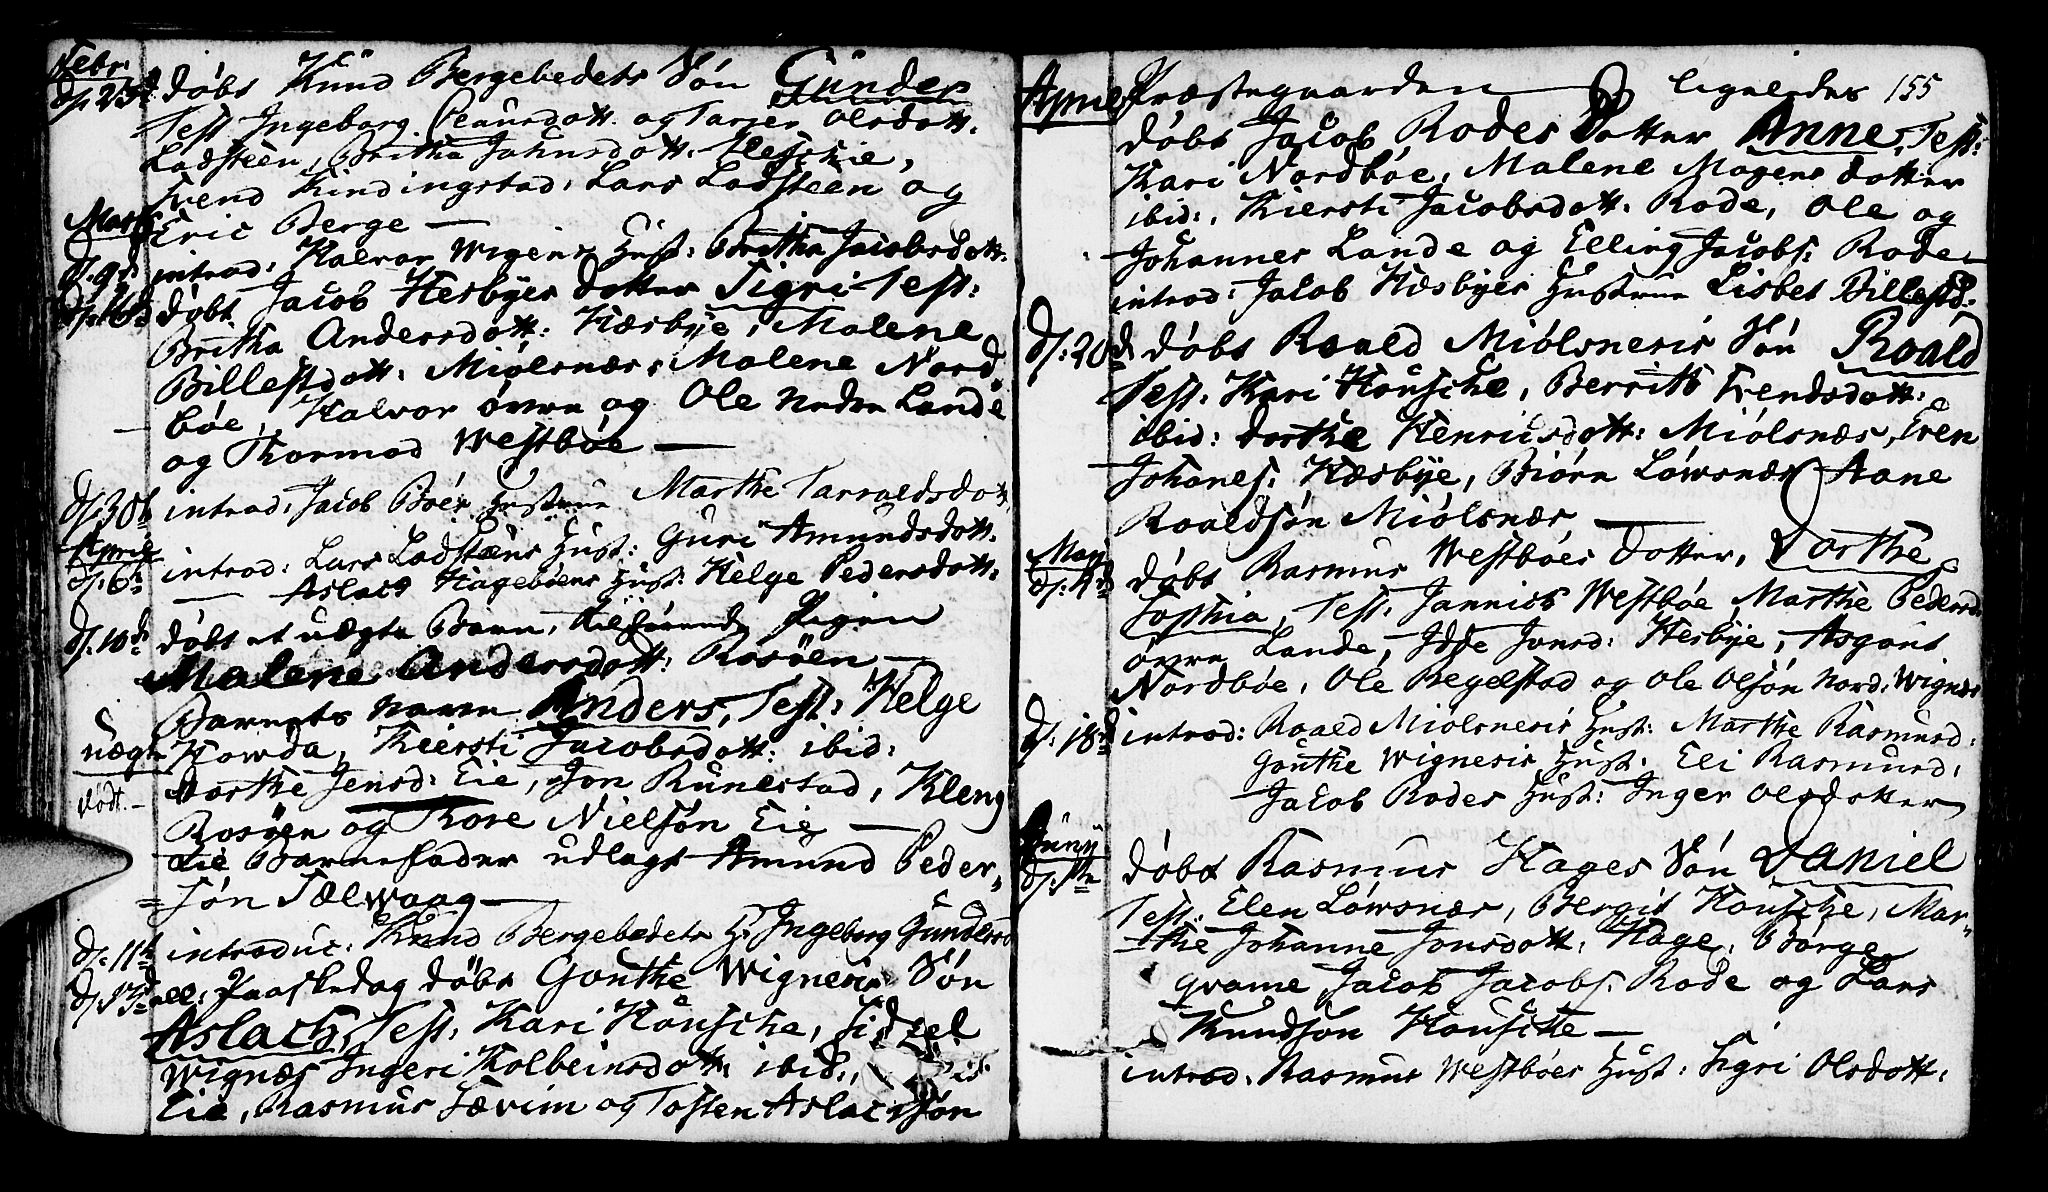 Febr
d: 23d døbt Knud Bergebedets Søn Günder
Test. Ingeborg Olausdott. og Tarjer Olsdott.
Ladsteen, Britha Johnsdott. Fleschie,
Svend Kindingstad, Lars Ladsteen og
Eric Berge —
Marti
d: 9d introd: Halvor Wigens Hust: Britha Jacobsdott.
d: 16d døbt Jacob Hesbyes dotter Sigri Test:
Britha Andersdott: Hæsbÿe, Malene
Billestdott: Miølsnæs, Malene Nord
bøe, Halvor øvre og Ole nedre Lande
og Thormod Westbøe —
d: 30t introd: Jacob Bøes Hustrue Marthe Tarraldsdott
April
d: 6t introd: Lars Ladsteens Hust: Guri Amundsdott.
— Aslach Hagebøens Hust: Helge Pedersdott:
d: 10de døbt et uægte Barn, Pigen
Malene Andersdott: Rosøen —
Barnets navn Anders, Test: Helge
uægte Howda, Kiersti Jacobsdott: ibid:
født. — Dorthe Jensd: Eie, Jon Runestad, Kleng
Rosøen og Thore Nielsøn Eie —
til Barnefader udlagt Amund Peder-
-søn Sælwaag —
d: 11t introduc: Knud Bergebedets H: Ingeborg Gunders
d: 13d all: Paaskedag døbt Gouthe Wignesis Søn
Aslach, Test: Kari Houscke, Sidzel
Wignæs Ingeri Kolbeinsdott: ibid:,
Eie, Rasmus Sævim og Tosten Aslachsøn
April Præstegaarden ligeledes 155
døbt Jacob Rodes Dotter Anne, Test:
Kari Nordbøe, Malene Mogens dotter
ibid:, Kiersti Jacobsdott: Rode, Ole og
Johannes Lande og Elling Jacobs: Rode —
introd: Jacob Hæsbyes Hustrue Lisbet Billestd:
d: 20d døbt Roald Miølsnesis Søn Roald
Test: Kari Houscke, Berrith Svendsdott:
ibid: Dorthe Henricsdott: Miølsnæs, Even
Johanes: Hæsbÿe, Biørn Løwsnæs Aane
Roaldsøn Miølsnæs —
Maii
d: 4d døbt Rasmus Westbøes Dotter, Dorthe
Sophia, Test: Jannich Westbøe Marthe Pedersd
øvre Lande, Idse Jonsd: Hesbÿe, Asgout
Nordbøe, Ole Regelstad og Ole Olsøn nord: Wignæs
d: 18d introd: Roald Miolsnesis Hust: Marthe Rasmusd:
Gouthe Wignesis Hust: Eli Rasmusd:
Jacob Rodes Hust: Inger Olsdotter
Junÿ
d: 1te døbt Rasmus Hages Søn Daniel
Test: Elen Løwsnæs, Bergit Houscke, Mar-
-the Johanne Jonsdott: Hage, Børge
Qvame Jacob Jacobs: Rode og Lars
Knudsøn Houscke —
introd. Rasmus Westbøes Hust: Sigri Olsdott: